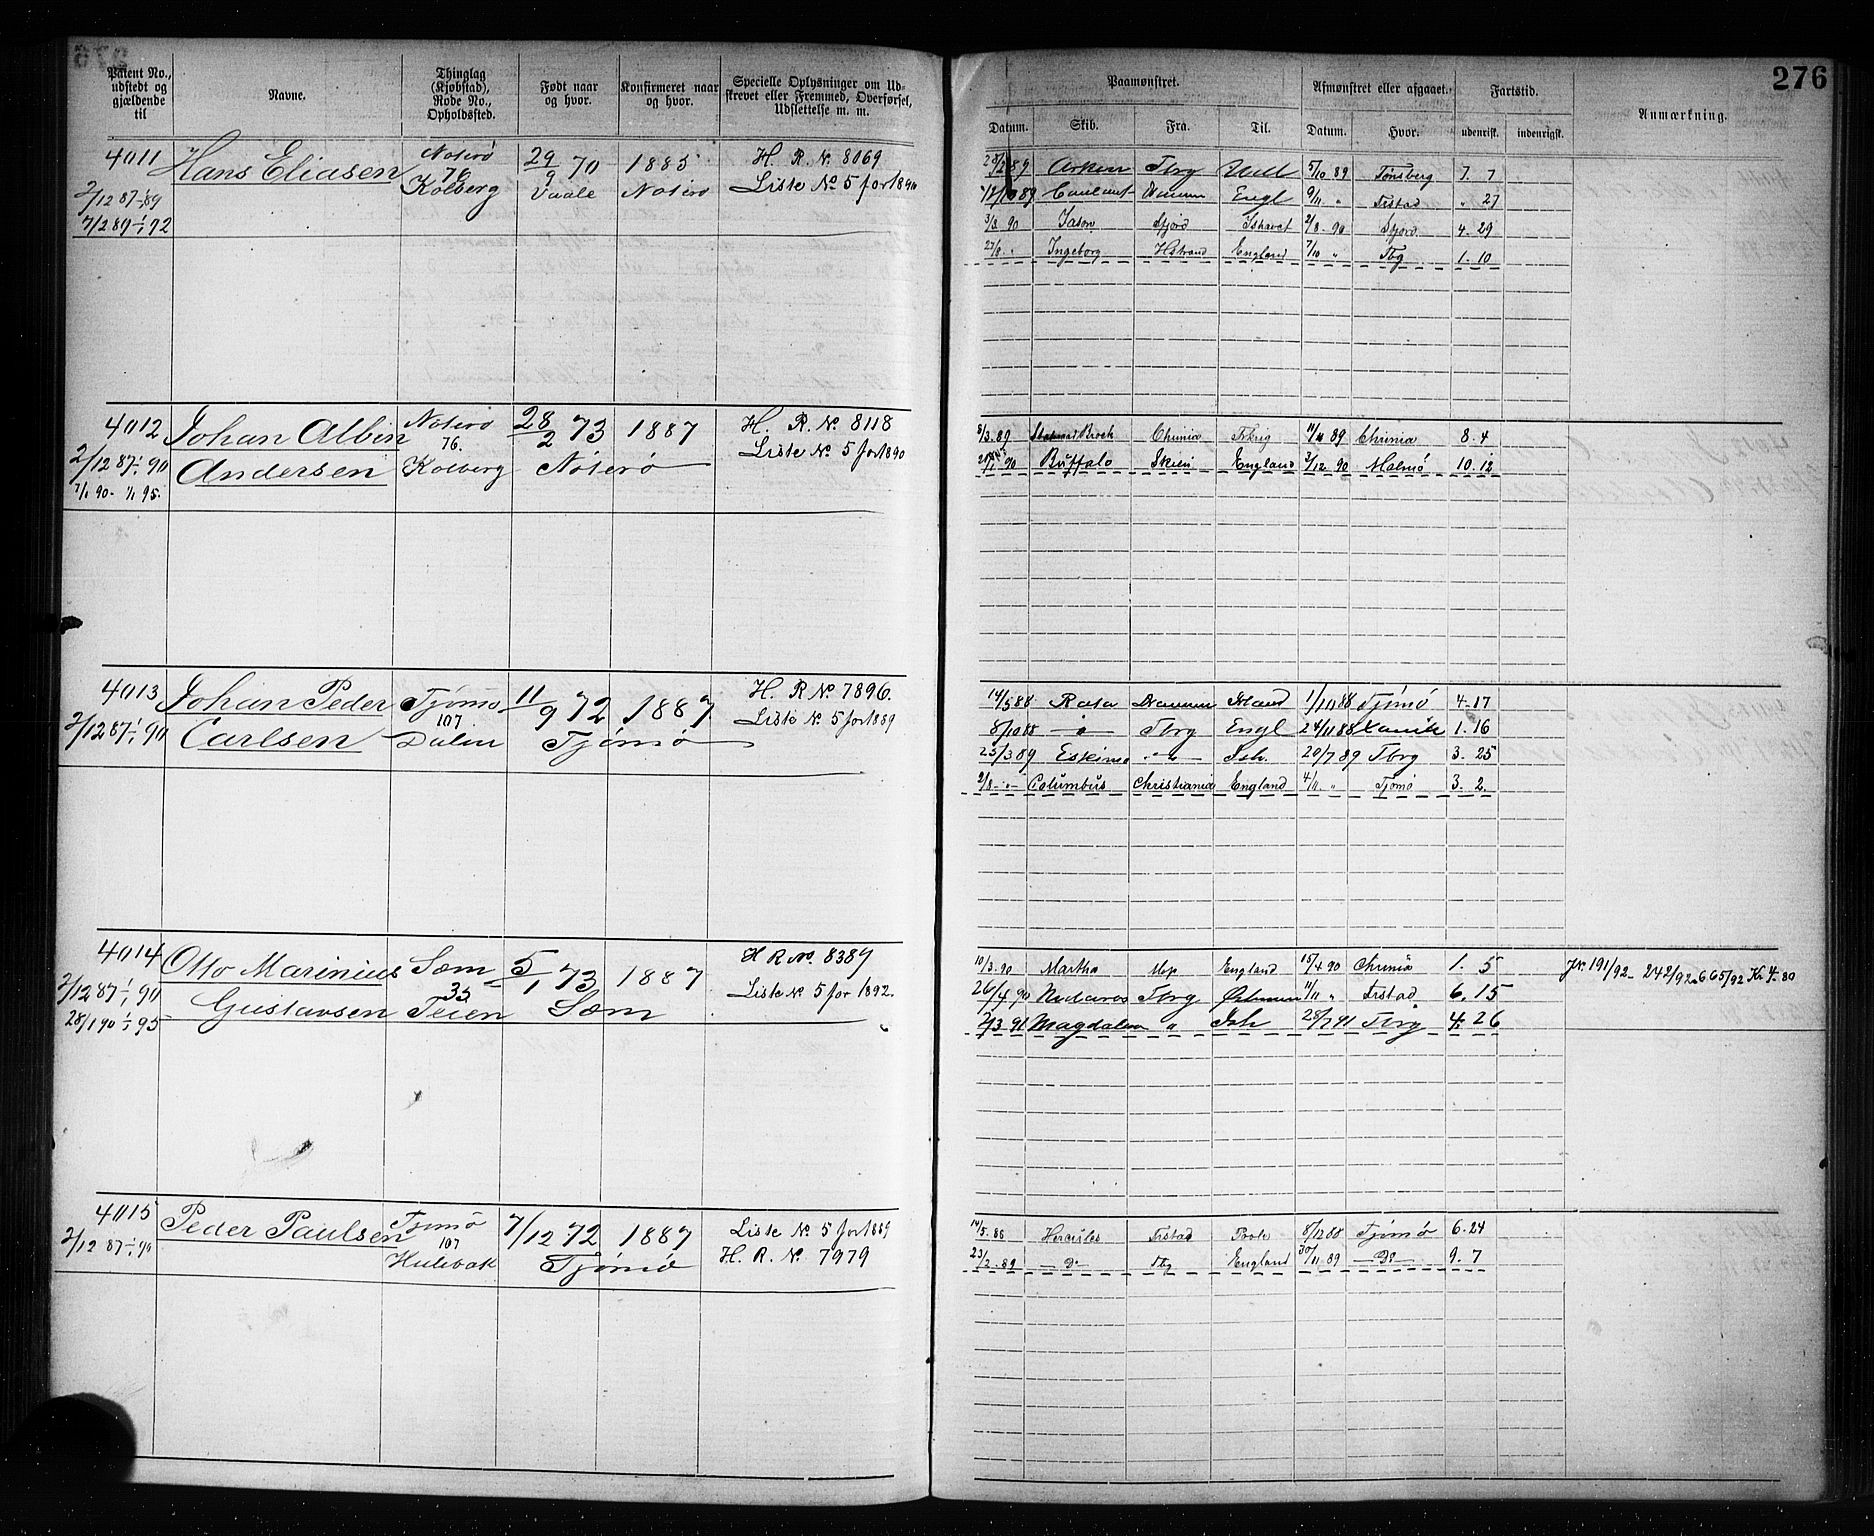 276
Patent No., udstedt og gjældende til
Navne.
Thinglag (Kjøbstad), Rode No., Opholdssted.
Født naar og hvor.
Konfirmeret naar og hvor.
Specielle Oplysninger om Udskrevet eller Fremmed, Overførsel, Udslettelse m. m.
Paamønstret.
Afmønstret eller afgaaet.
Fartstid.
Anmærkning.
Datum. Skib. Fra. Til. Datum. Hvor. udenrigsk. indenrigsk.
4011 Hans Eliasen Nøterø 29/9 70 1885 H. R. № 8069
2/12 87 1/1 89 76 Kolberg Vaale Nøterø Liste № 5 for 1890
7/2 89 1/1 92
Tbg 5/10 89 Tønsberg 7. 7
Engl 9/11 " Frstad " 27
3/3 90 Jason Sfjord Ishavet 2/8 90 Sfjord 4. 29
27/8 " Ingeborg Hstrand England 7/10 " Tbg 1. 10
4012 Johan Albin Nøterø 28/2 73 1887 H. R. № 8118
2/12 87 1/1 90 Andersen 76. Kolberg Nøterø Liste № 5 for 1890
7/1 90 - 1/1 95.
8/3 89 Chrinia 89 Chrinia 8. 4
90 Buffalo Skien England 3/12 90 Malmö 10. 12
4013 Johan Peder Tjømø 11/9 72 1887 H. R № 7896.
2/12 87 1/1 90 Carlsen 107 Dalen Tjømø Liste № 5 for 1889
14/5 88 Rosa Drammen 1/10 88 Tjømø 4. 17
8/10 88 - " - Tbrg Engl 24/11 88 1. 16
25/3 89 Eskimo - " - Ish. 20/7 89 Tbrg 3. 25
2/8 - " - Columbus Christiania England 4/11 " Tjömö 3. 2.
4014 Otto Marinius Sæm 5/1 73 1887 H R № 8389
2/12 87 1/1 90 Gustavsen 35 Teien Sæm Liste № 5 for 1892.
28/1 90 1/1 95
10/3 90 Martha England 15/4 90 Chrinia 1. 5 J№ 191/92 - 242/92 - 665/92 Kr 4. 80
26/4 90 Nidaros Tbrg 11/11 " Frstad 6. 15
2/3 91 Magdalena " Ish 28/7 91 Tbrg 4. 26
4015 Peder Paulsen Tjømø 7/12 72 1887 Liste № 5 for 1889
2/12 87 1/1 90 107 Hulebak Tjømø H. R. № 7979
14/5. 88 Hercules Frstad Poole 8/12 88 Tjømø 6. 24
23/2. 89 - Do Tbg England 30/11 89 - Do - 9. 7